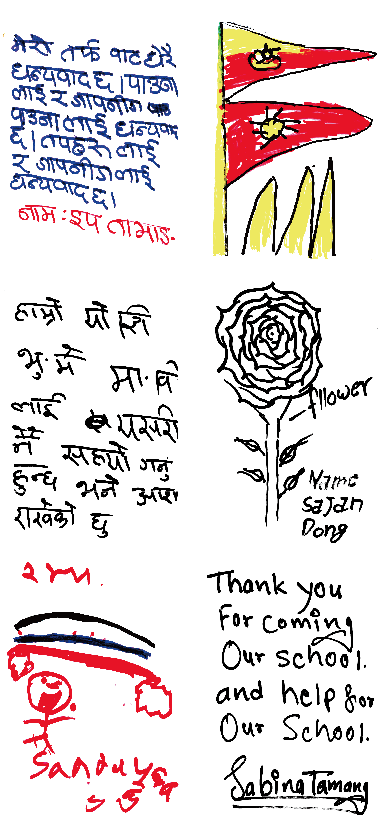 मेरो तर्फ बाट धेरै
धन्यवाद छ। पाउना
लाई र जापनीज
पाउना लाई धन्यवाद
छ। तपहरु लाई
र जापनीज लाई
धन्यवाद छ।
नाम : इप तामाङ.
हाम्रो यो
भु. मे मा. वि
लाई यसरी
नै सहयो गनु
हुन्छ भने आशा
राखेको छु
fllower
Name
Sajan
Dong
Thank you
For coming
Our school.
and help for
Our School.
Sabina Tamang